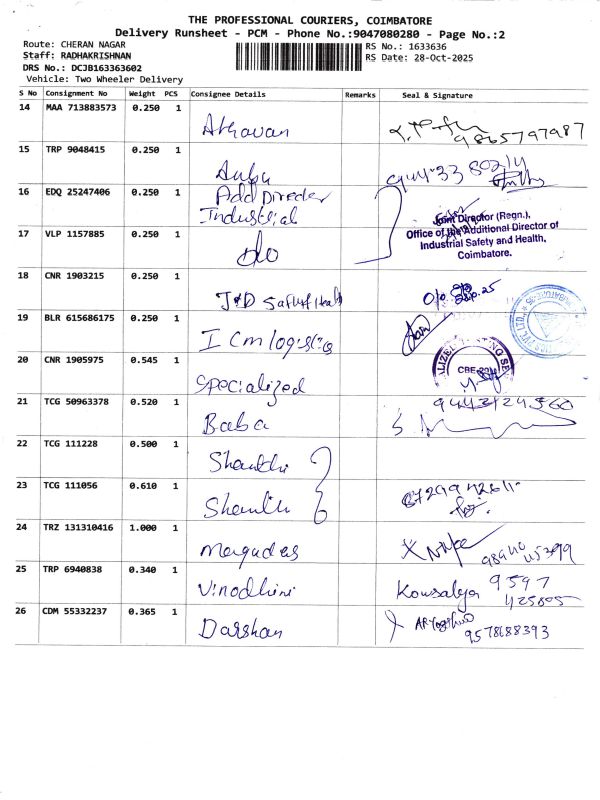 THE PROFESSIONAL COURIERS, COIMBATORE
Delivery Runsheet - PCM - Phone No.:9047080280 - Page No.:2
Route: CHERAN NAGAR
RS No.: 1633636
Staff: RADHAKRISHNAN
RS Date: 28-Oct-2025
DRS No.: DCJB163363602
Vehicle: Two Wheeler Delivery
S No Consignment No Weight PCS Consignee Details Remarks Seal & Signature
14 MAA 713883573 0.250 1
Athavan 9865797987
15 TRP 9048415 0.250 1
Anbu
16 EDQ 25247406 0.250 1
Add Director
Industrial
Joint Director (Regn.),
Office of the Additional Director of
Industrial Safety and Health,
Coimbatore.
17 VLP 1157885 0.250 1
do
18 CNR 1903215 0.250 1
19 BLR 615686175 0.250 1
I Cm logistics
20 CNR 1905975 0.545 1
Specialized
21 TCG 50963378 0.520 1
Baba
22 TCG 111228 0.500 1
Shanthi
23 TCG 111056 0.610 1
Shanthi
24 TRZ 131310416 1.000 1
25 TRP 6940838 0.340 1
Vinodhini Kowsalya 9597
425805
26 CDM 55332237 0.365 1
Darshan
9578688393